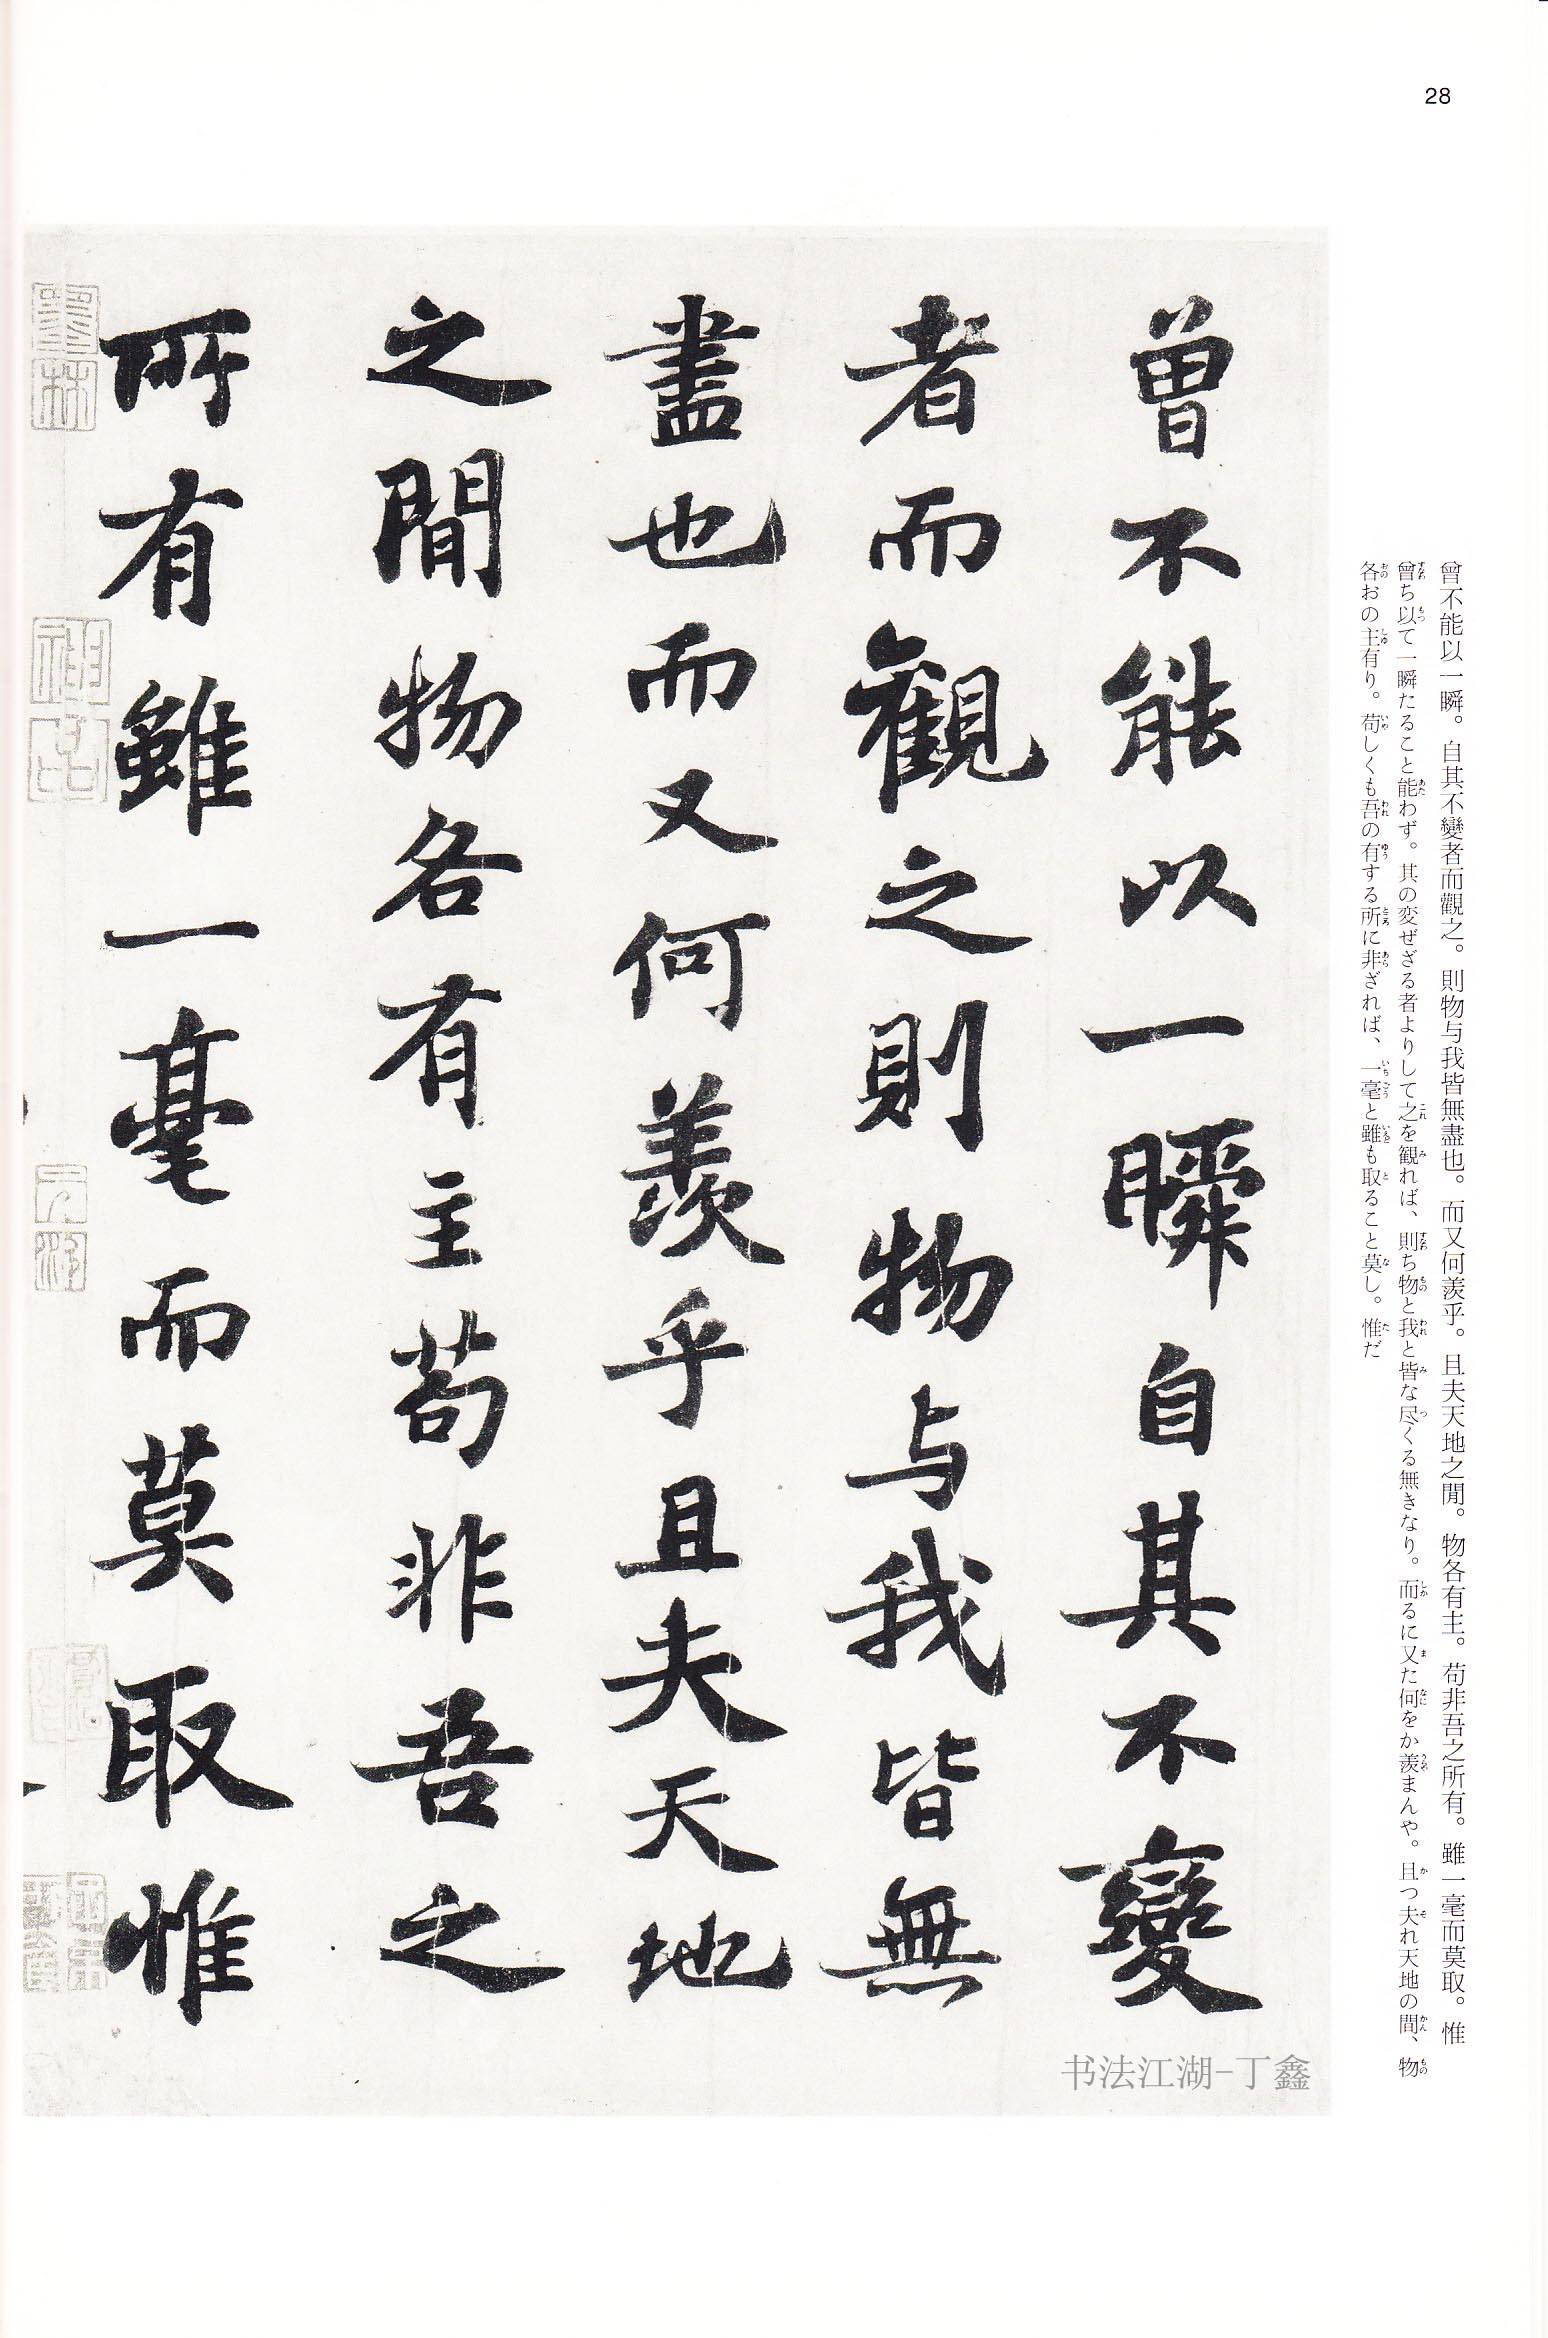 28
曾不能以一瞬。自其不變者而觀之。則物与我皆無盡也。而又何羨乎。且夫天地之閒。物各有主。苟非吾之所有。雖一毫而莫取。惟
曾ち以て一瞬たること能わず。其の変ぜざる者よりして之を観れば、則ち物と我と皆な尽くる無きなり。而るに又た何をか羨まんや。且つ夫れ天地の間、物
各おの主有り。苟しくも吾の有する所に非ざれば、一毫と雖も取ること莫し。惟だ
曾不能以一瞬自其不變
者而觀之則物与我皆無
盡也而又何羨乎且夫天地
之閒物各有主苟非吾之
所有雖一毫而莫取惟
书法江湖-丁鑫